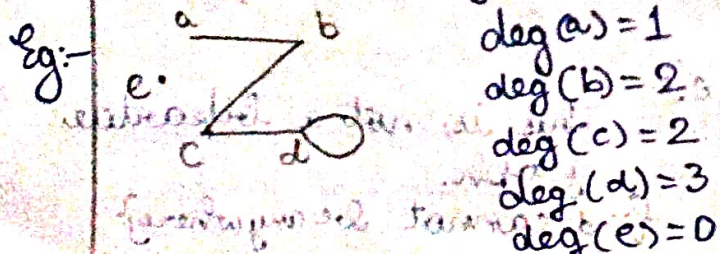 Eg:-
a b
e.
c d
deg(a)=1
deg(b)=2
deg(c)=2
deg(d)=3
deg(e)=0